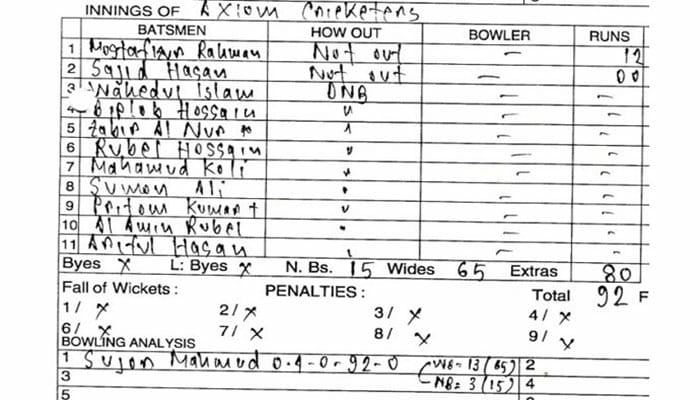 INNINGS OF Axiom Cricketers
BATSMEN HOW OUT BOWLER RUNS
1 Mostafizur Rahman Not out — 12
2 Sajid Hasan Not out — 00
3 Wahedul Islam DNB — —
4 Biplob Hossain " — —
5 Zabir Al Nur " — —
6 Rubel Hossain " — —
7 Mahamud Koli " — —
8 Sumon Ali " — —
9 Pritom Kumar † " — —
10 Al Amin Rubel " — —
11 Ariful Hasan " — —
Byes x L: Byes x N. Bs. 15 Wides 65 Extras 80
Fall of Wickets : PENALTIES : Total 92 F
1/ x 2/ x 3/ x 4/ x
6/ x 7/ x 8/ x 9/ x
BOWLING ANALYSIS
1 Sujon Mahmud 0.4-0-92-0 (WB=13(65) 2
3 NB=3(15) 4
5